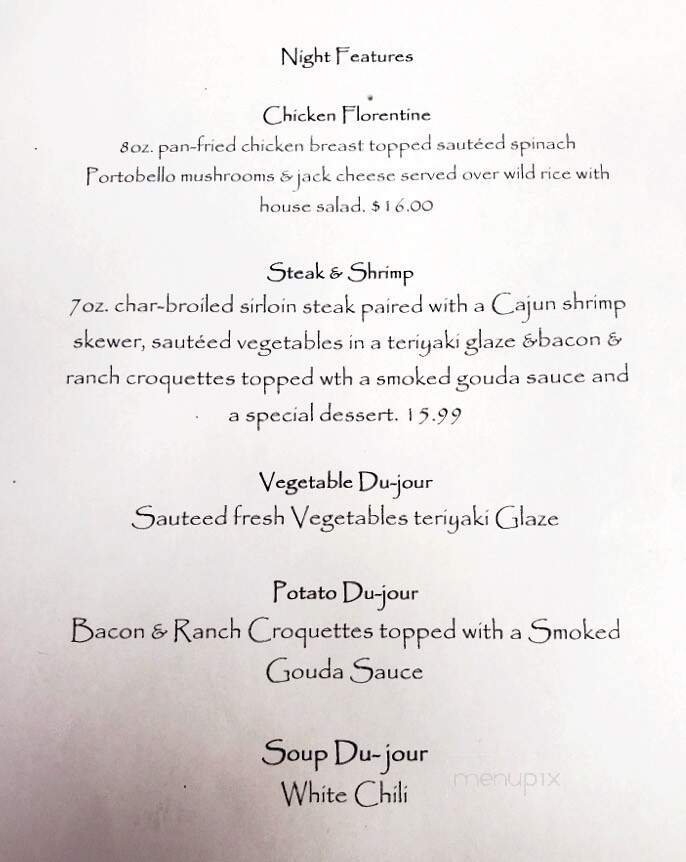 Night Features
Chicken Florentine
8oz. pan-fried chicken breast topped sautéed spinach
Portobello mushrooms & jack cheese served over wild rice with
house salad. $16.00
Steak & Shrimp
7oz. char-broiled sirloin steak paired with a Cajun shrimp
skewer, sautéed vegetables in a teriyaki glaze &bacon &
ranch croquettes topped wth a smoked gouda sauce and
a special dessert. 15.99
Vegetable Du-jour
Sauteed fresh Vegetables teriyaki Glaze
Potato Du-jour
Bacon & Ranch Croquettes topped with a Smoked
Gouda Sauce
Soup Du-jour
White Chili
menupix